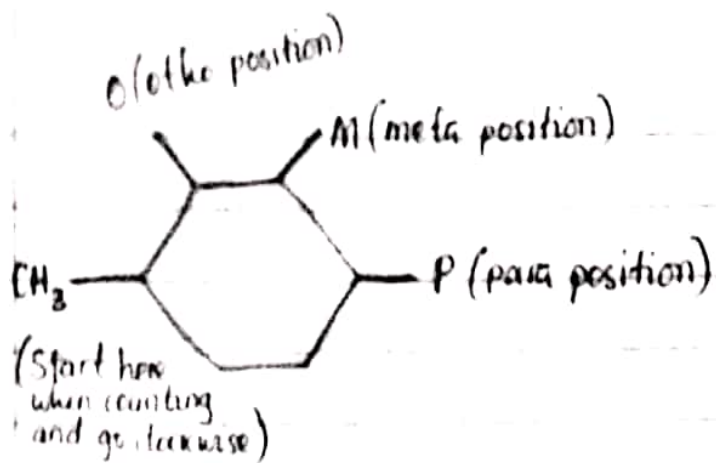 O(otho position)
M(meta position)
CH₃
P (para position)
(Start here
when counting
and go clockwise)